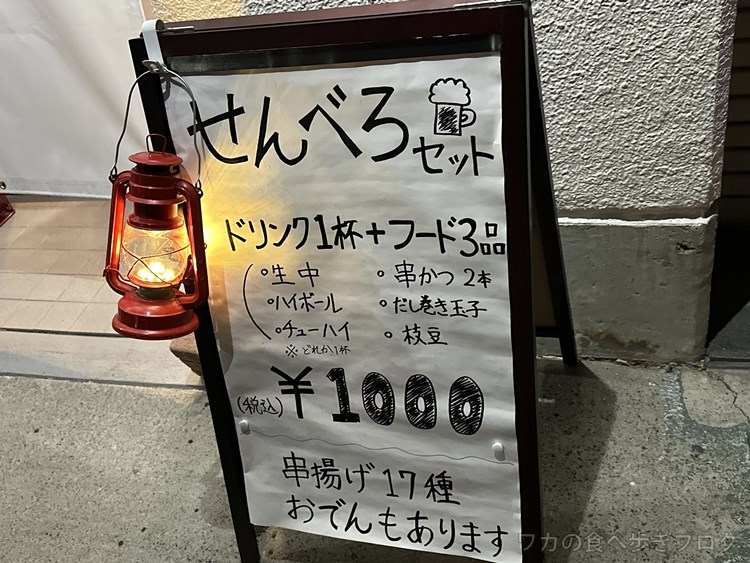 せんべろ
セット
ドリンク1杯+フード3品
◦生中 ◦串かつ 2本
◦ハイボール ◦だし巻き玉子
◦チューハイ ◦枝豆
※どれか1杯
(税込) ¥1000
串揚げ17種
おでんもあります
ワカの食べ歩きブログ